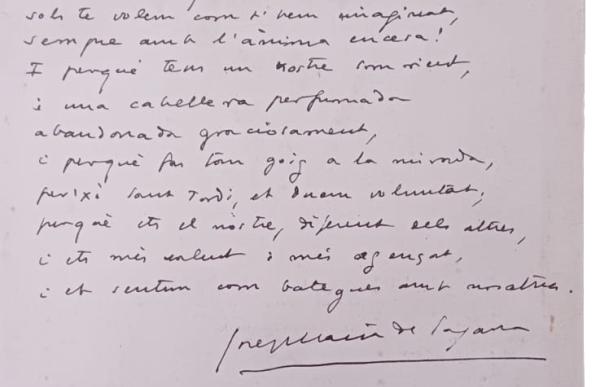 sols te volem com t'hem imaginat,
sempre amb l'ànima encesa!
I perquè tens un rostre somrient,
i una cabellera perfumada
abandonada graciosament,
i perquè fas tan goig a la mirada,
per'xò Sant Jordi, et duem voluntat,
perquè ets el nostre, diferent dels altres,
i ets més valent i més agençat,
i et sentim com bategues amb nosaltres.
Josep Maria de Sagarra